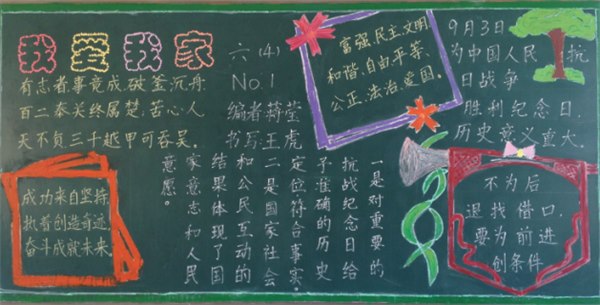 我爱我家
有志者事竟成,破釜沉舟
百二秦关终属楚;苦心人
天不负三千越甲可吞吴。
成功来自坚持,
执着创造奇迹,
奋斗成就未来.
六(4)
No.1
编者蒋莹
书写:王虎
一是对重要的
抗战纪念日给
予准确的历史
定位符合事实
二是国家社会
和公民互动的
结果体现了国
家意志和人民
意愿。
富强、民主、文明、
和谐、自由、平等、
公正、法治、爱国、
9月3日
为中国人民抗
日战争
胜利纪念日
历史意义重大.
不为后
退找借口,
要为前进
创条件